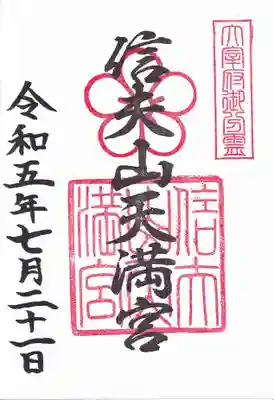 太宰府御分霊
信夫山天満宮
令和五年七月二十一日